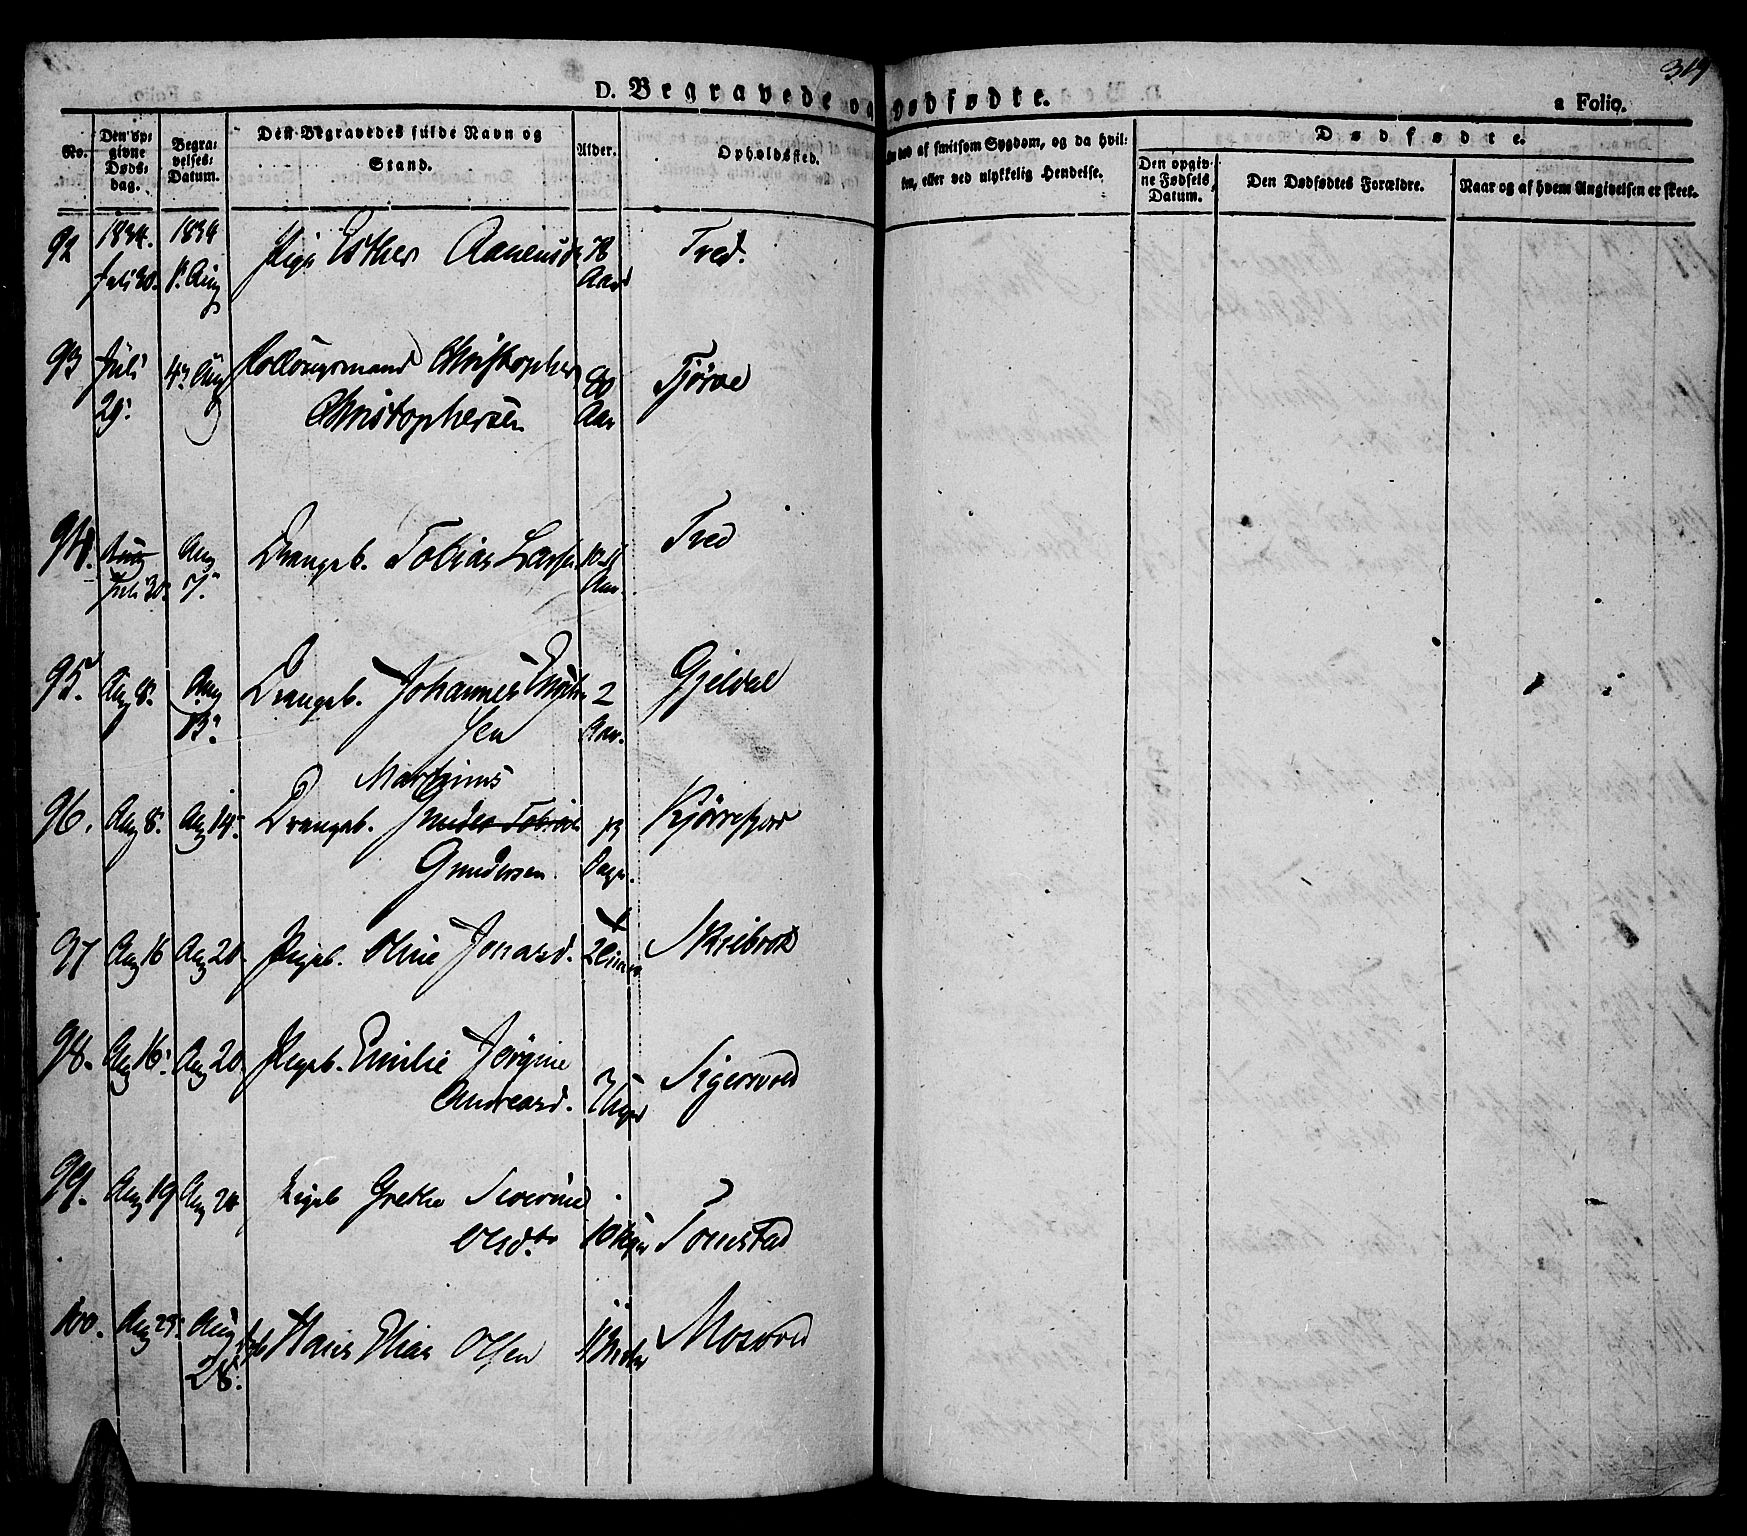 319
D. Begravede og Dødfødte.
a Folio.
No.
Den opgivne Dødsdag.
Begravelses-Datum.
Den Begravedes fulde Navn og Stand.
Alder.
Opholdssted.
død af smitsom Sygdom, og da hvilken, eller ved ulykkelig Hendelse.
Dødfødte.
Den opgivne Fødsels Datum.
Den Dødfødtes Forældre.
Naar og af hvem Angivelsen er skeet.
92 1834. Juli 30. 1834 1. Aug Pige Esther Aanensd. Aar Tved.
93 Juli 29. 4. Aug Christopher Christophersen 80 Aar Tjørve
94. Aug Juli 30. Aug 7. Drengeb. Tobias Lars Aar. Tved
95. Aug 8. Aug 13. Drengeb. Johannes sen 2 Aar. Gjelval
96. Aug 8. Aug 14. Drengeb. Mathias Gundersen 13 Dage.
97 Aug 16 Aug 20. Pigeb. Oline Jonasd. Skeibrok
98. Aug 16. Aug 20. Pigeb. Emilie Jørgine Andreasd. Uger Sigersvold
99. Aug 19 Aug 20 Pigeb Grethe Severine Olsd. 10 Uger Tomstad
100. Aug 23. Aug 28. Hans Elias Olsen Mosvold